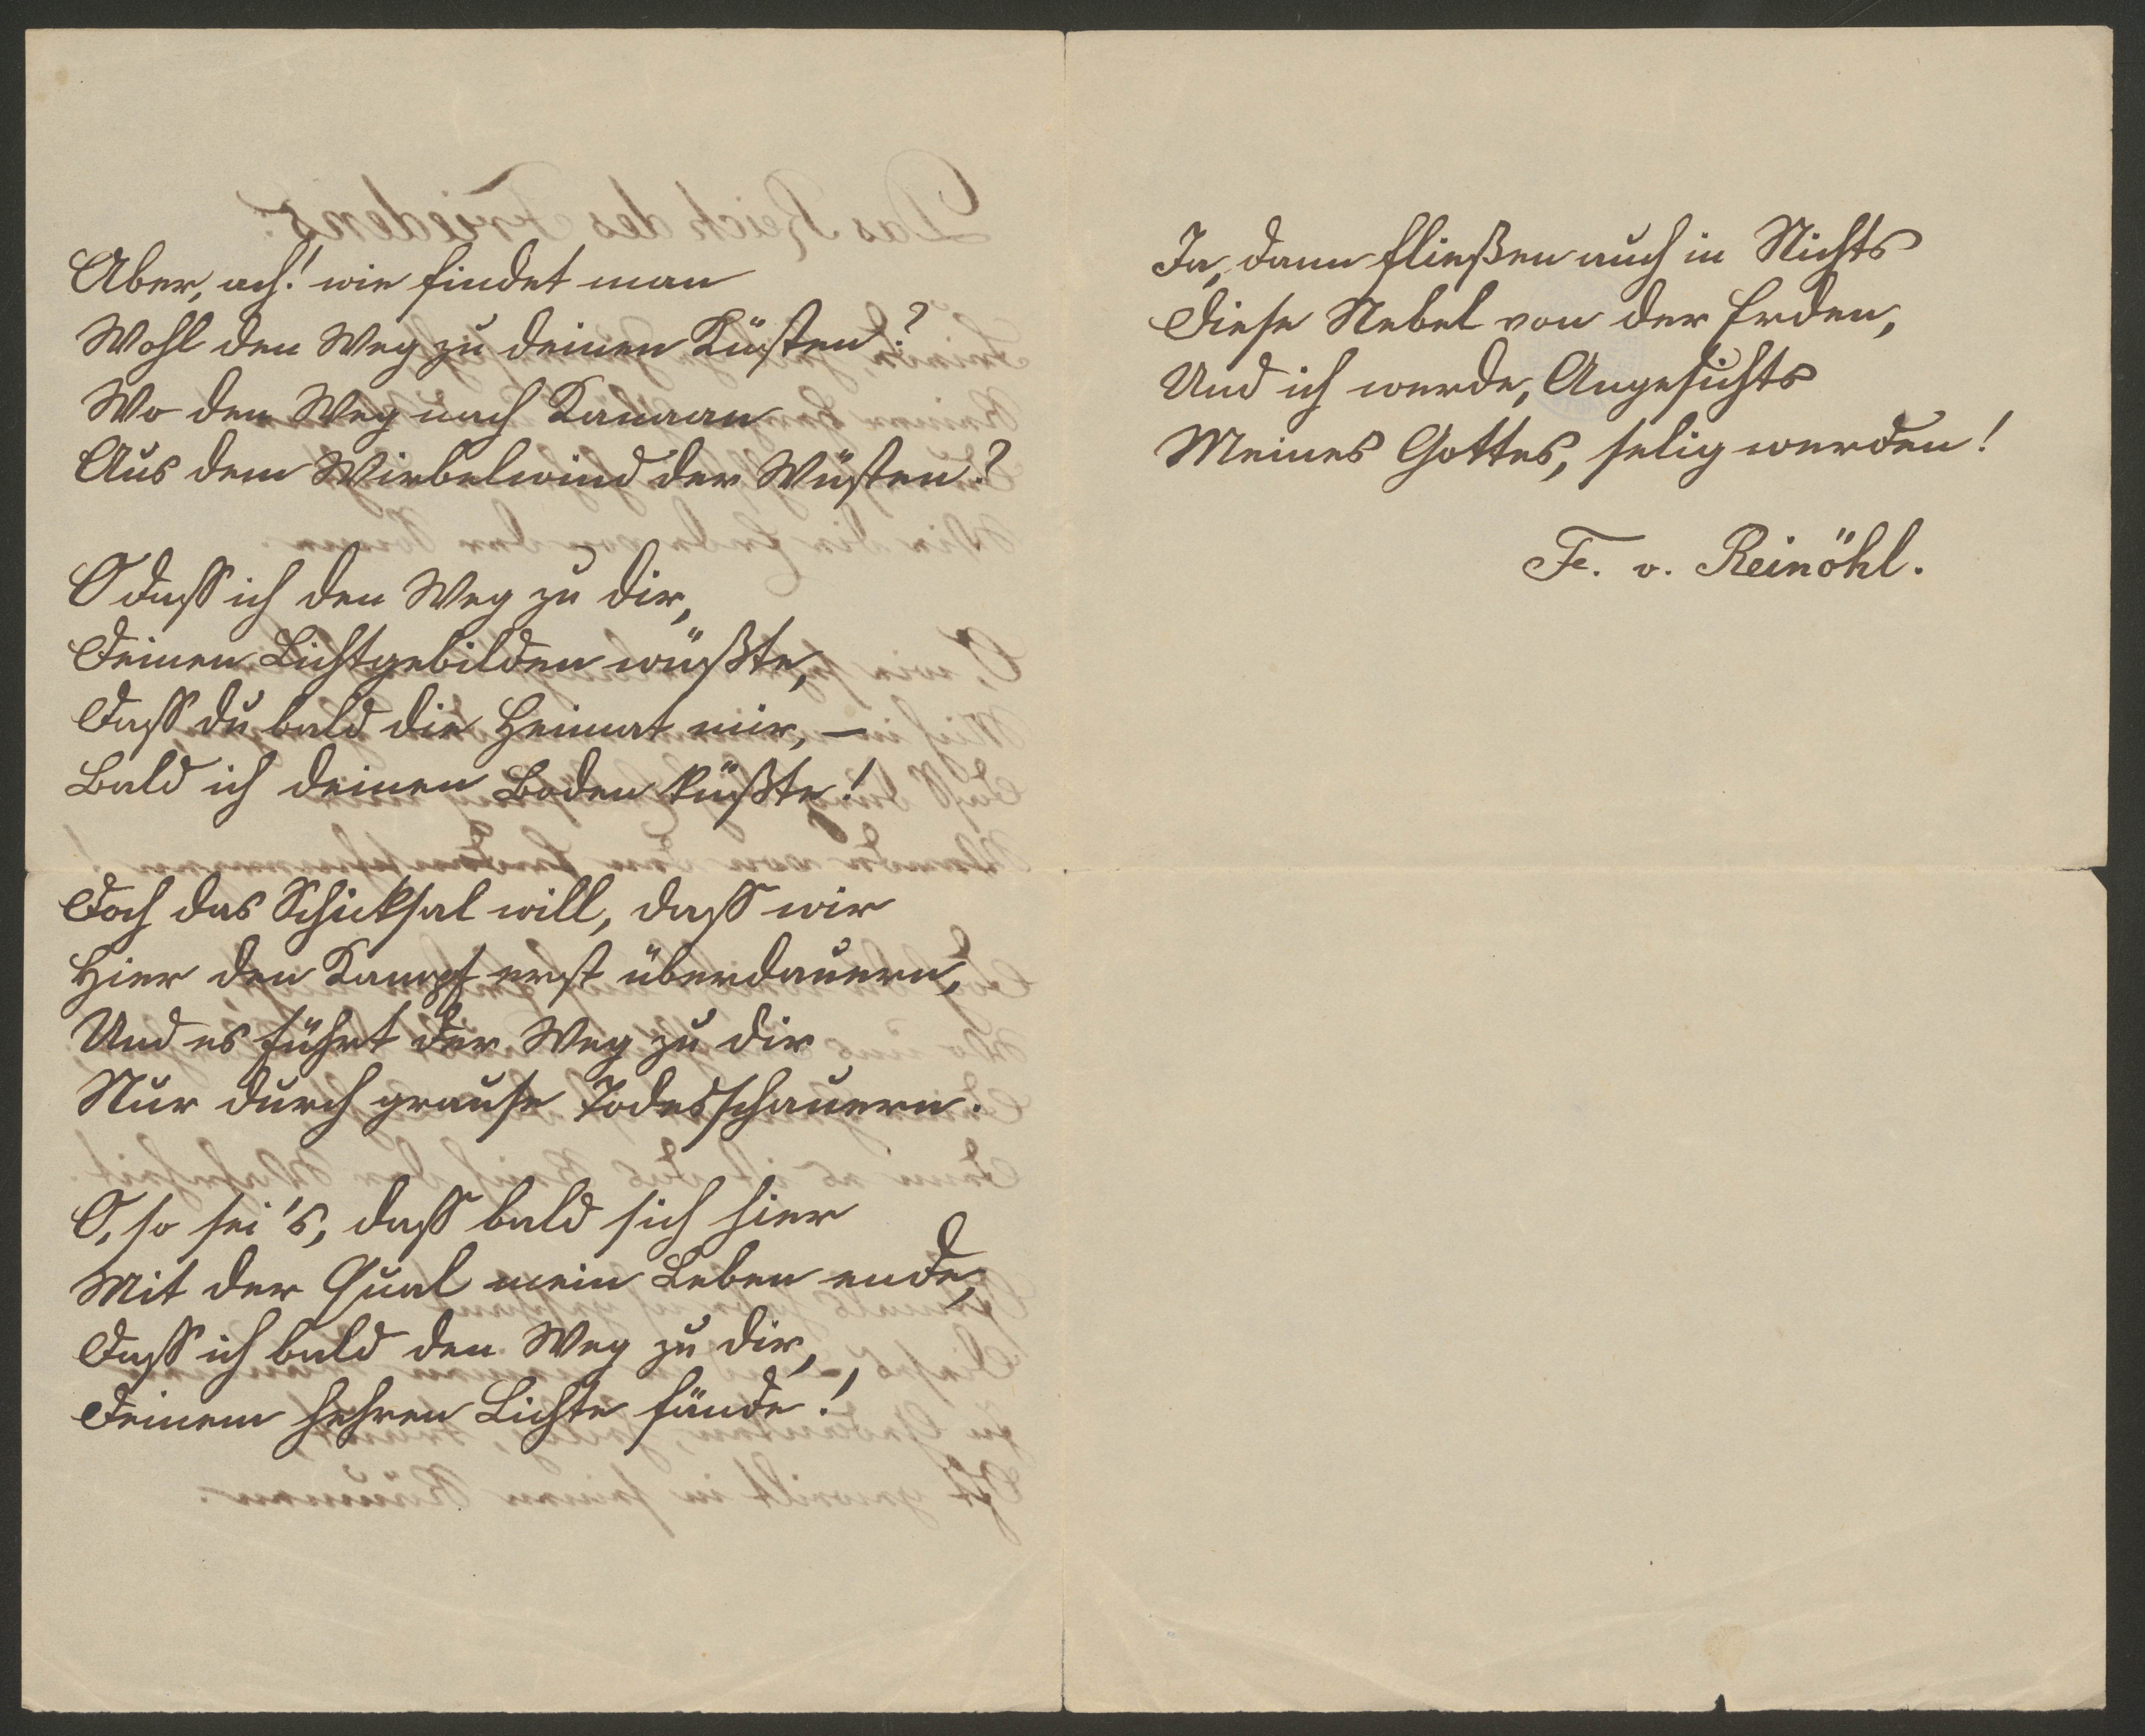 Aber, ach! wie findet man
Wohl den Weg zu deinen Küsten?
Wo den Weg nach Kanaan
Aus dem Wirbelwind der Wüsten?
O daß ich den Weg zu dir,
Deinen Lichtgebilden wüßte,
Daß du bald die Heimat mir, –
Bald ich deinen Boden küßte!
Doch das Schicksal will, daß wir
Hier den Kampf erst überdauern,
Und es führt der Weg zu dir
Nur durch grause Todesschauern.
O, so sei's, daß bald sich hier
Mit der Qual mein Leben ende,
Daß ich bald den Weg zu dir,
Deinem hehren Lichte fände!
Ja, dann fließen auch in Nichts
Diese Nebel von der Erden,
Und ich werde, Angesichts
Meines Gottes, selig werden!
Fr. v. Reinöhl.
Das Reich des Friedens.